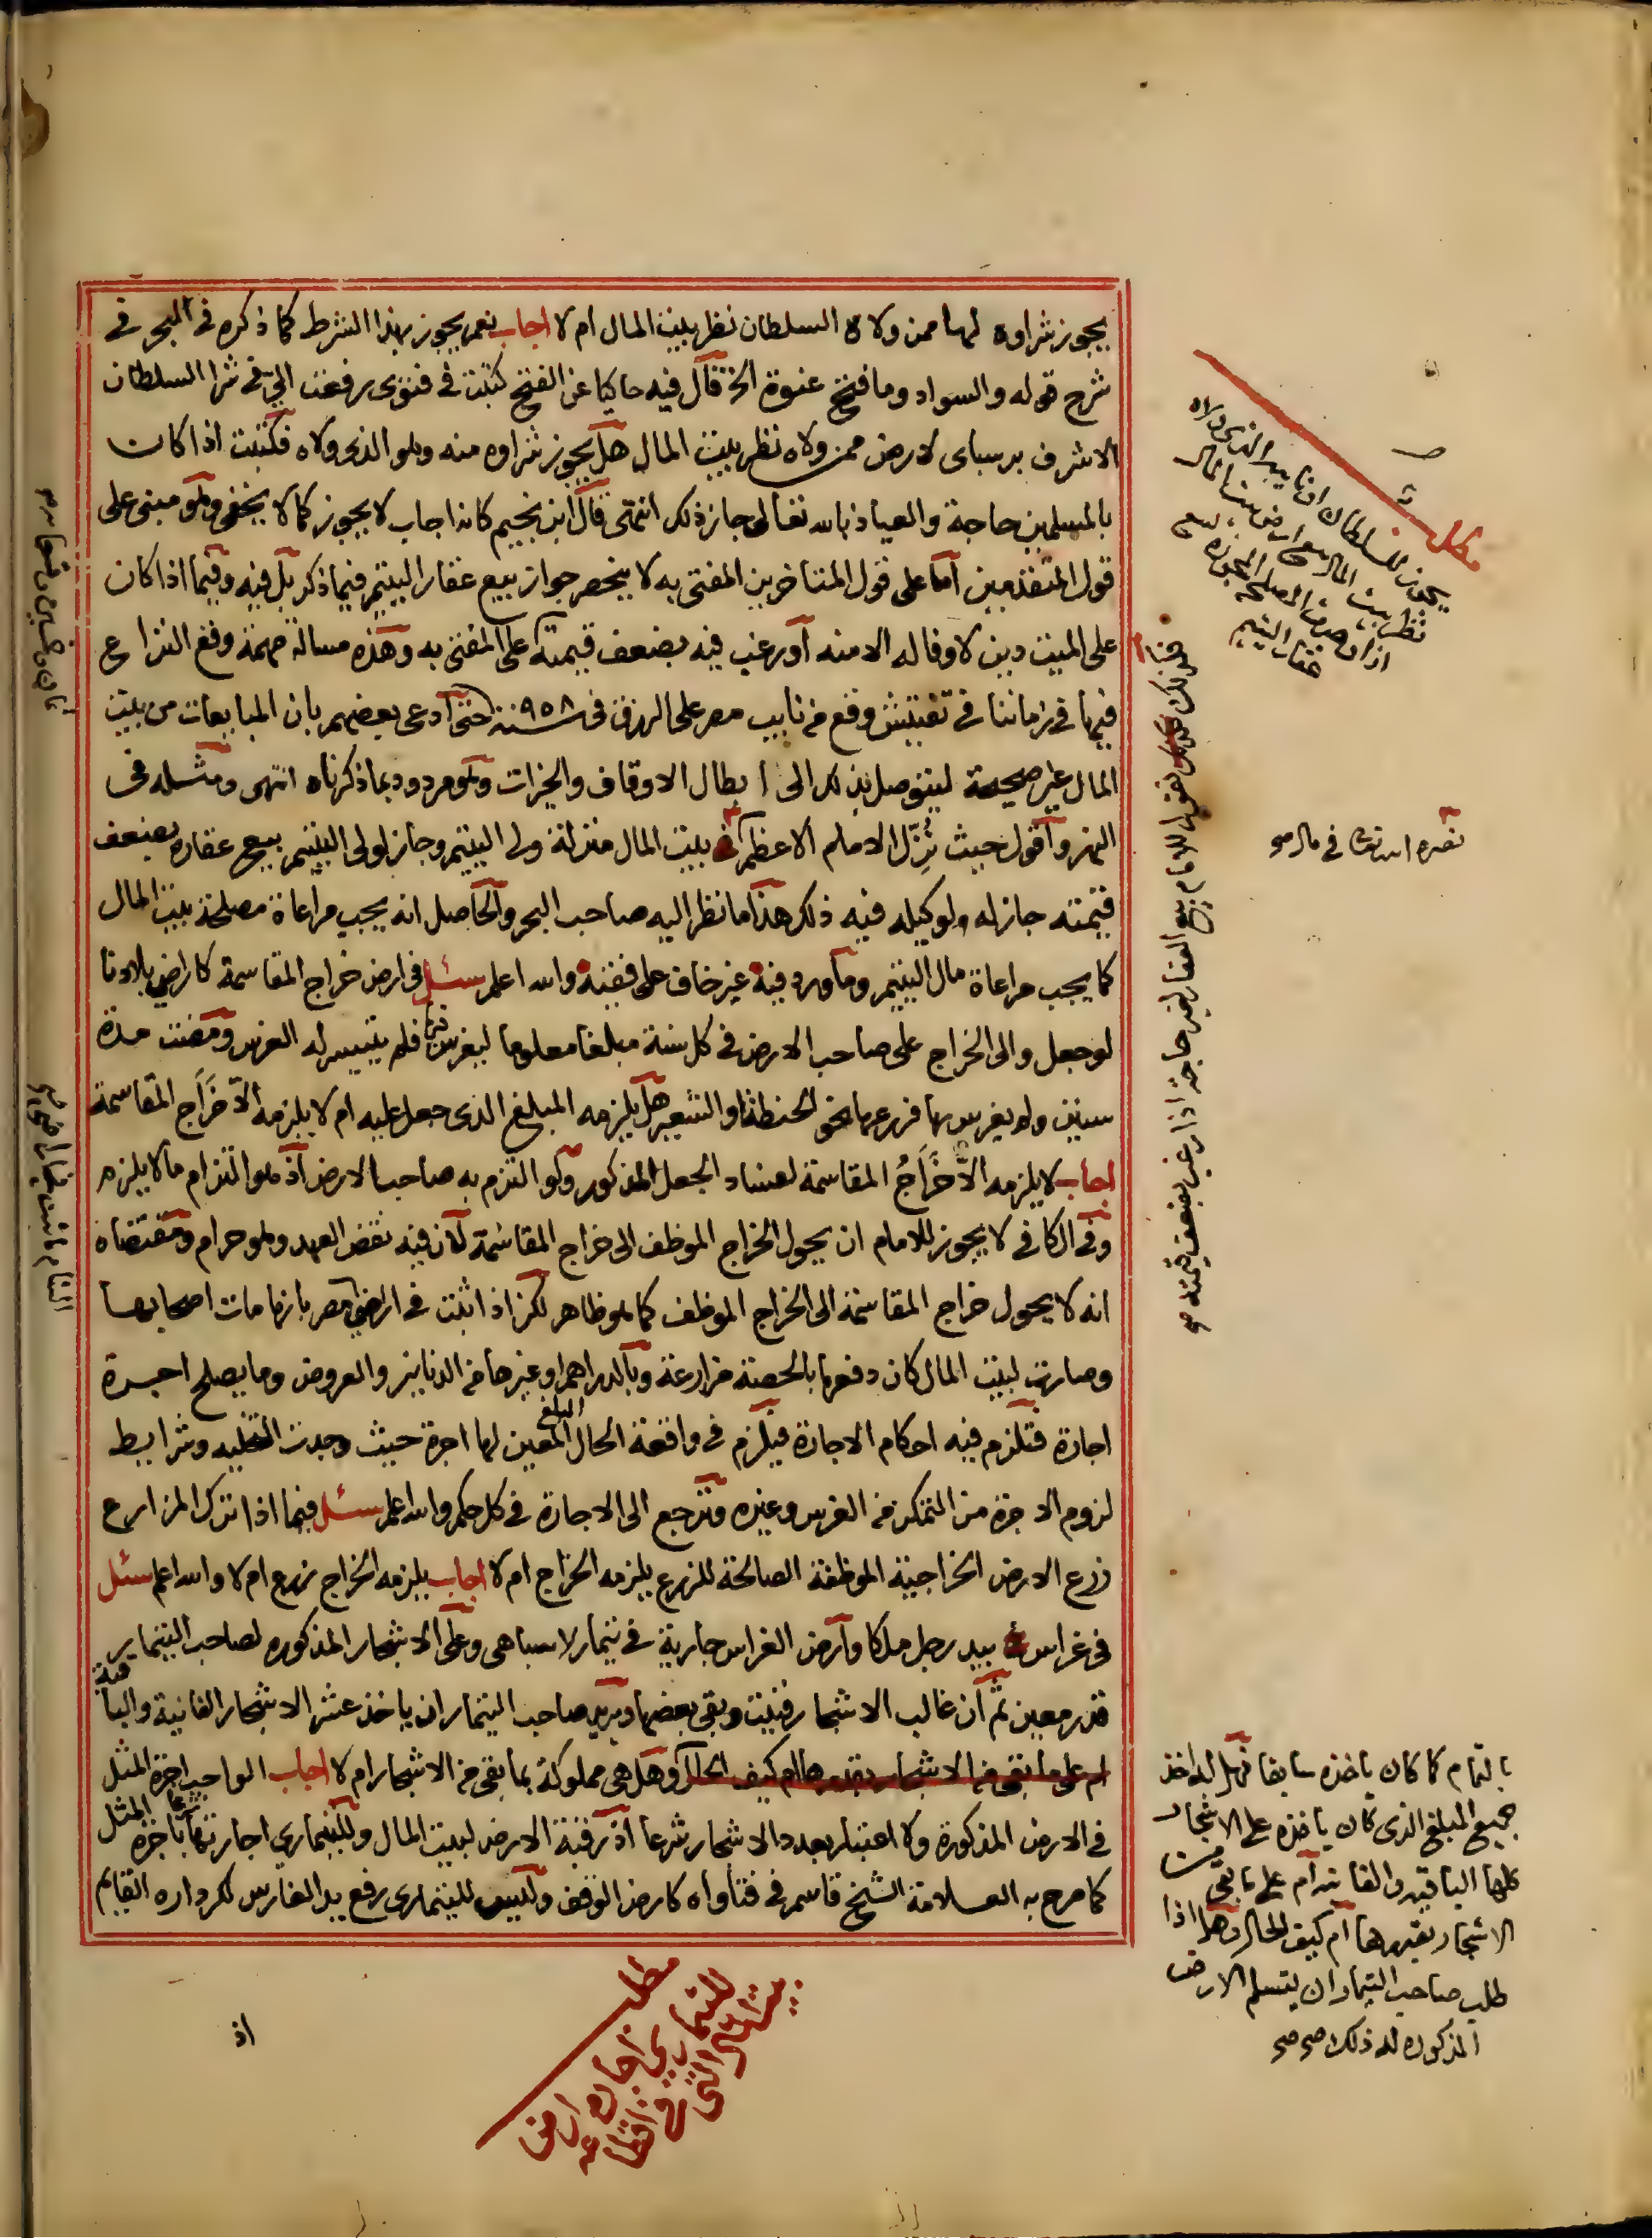 يجوز شراوه لها ممن ولاه السلطان نظر بيت المال ام لا اجاب نعم يجوز بهذا الشرط كما ذكره في البحر في
شرح قوله والسواد وما فتح عنوة الخ فقال فيه حاكيا عن الفتح كتبت في فتوى رفعت الي في شرا السلطان
الاشرف برسباى لارض ممن ولاه نظر بيت المال هل يجوز شراوه منه وهو الذى ولاه فكتبت اذا كان
بالمسلمين حاجة والعياذ بالله تعالى جاز ذلك انتهى قال ابن نجيم كانه اجاب لا يجوز كما لا يخفى وهو مبنى على
قول المتقدمين اما على قول المتاخرين المفتى به لا ينحصر جواز بيع عقار اليتيم فيما ذكر بل فيه وفيما اذا كان
على الميت دين لا وفا له الا منه او رغب فيه بضعف قيمته على المفتى به وهذه مسالة مهمة وقع النزاع
فيها في زماننا في تفتيش وقع من نايب مصر على الرزق في سنة ٩٥٨ حتى ادعى بعضهم بان المبايعات من بيت
المال غير صحيحة ليتوصل بذلك الى ابطال الاوقاف والخيرات وهو مردود بما ذكرناه انتهى ومثله في
النهر واقول حيث نزّل الامام الاعظم في بيت المال منزلة ولي اليتيم وجاز لولى اليتيم بيع عقاره بضعف
قيمته جاز له ولوكيله فيه ذلك هذا ما نظر اليه صاحب البحر والحاصل انه يجب مراعاة مصلحة بيت المال
كما يجب مراعاة مال اليتيم وما ورد فيه غير خاف على فقيه والله اعلم سئل في ارض خراج المقاسمة كاراضى بلادنا
لو جعل والى الخراج على صاحب الارض في كل سنة مبلغا معلوما ليغرس فيها فلم يتيسر له الغرس ومضت مدة
سنين ولم يغرس بها فزرعها نحو الحنطة او الشعير هل يلزمه المبلغ الذى جعل عليه ام لا يلزمه الا خراج المقاسمة
اجاب لا يلزمه الا خراج المقاسمة لفساد الجعل المذكور ولو التزم به صاحب الارض اذ هو التزام ما لا يلزم
وفي الكافي لا يجوز للامام ان يحول الخراج الموظف الى خراج المقاسمة لان فيه نقض العهد وهو حرام ومقتضاه
انه لا يحول خراج المقاسمة الى الخراج الموظف كما هو ظاهر لكن اذا ثبت في اراضى مصر بانها مات اصحابها
وصارت لبيت المال كان دفعها بالحصة مزارعة وبالدراهم او غيرها من الدنانير والعروض وما يصلح اجرة
اجارة فتلزم فيه احكام الاجارة فيلزم في واقعة الحال المبلغ المعين لها اجرة حيث وجدت التخليه وشرايط
لزوم الاجرة من التمكن من الغرس وغيره وترجع الى الاجارة في كل حكم والله اعلم سئل فيما اذا ترك المزارع
زرع الارض الخراجية الموظفة الصالحة للزرع يلزمه الخراج ام لا اجاب يلزمه الخراج زرع ام لا والله اعلم سئل
في غراس بيد رجل ملكا وارض الغراس جارية في تيمار لاسباهى وعلى الاشجار المذكوره لصاحب التيمار
قدر معين ثم ان غالب الاشجار فنيت وبقى بعضها ويريد صاحب التيمار ان ياخذ عشر الاشجار الفانية والباقية
ام على ما بقى من الاشجار بقدرها ام كيف الحال وهل هى مملوكة بما بقى من الاشجار ام لا اجاب الواجب اجرة المثل
في الارض المذكورة ولا اعتبار بعدد الاشجار شرعا اذ رقبة الارض لبيت المال وللتيماري اجارتها باجرة المثل شرعا
كما صرح به العلامة الشيخ قاسم في فتاواه كارض الوقف وليس للتيمارى رفع يد الغارس لكرداره القايم
اذ
مطلب
يجوز للسلطان ان يبيع الذى ولاه
نظر بيت المال
عقار اليتيم
للامام بيع العقار لغير حاجة اذا رغب بضعف قيمته صح
بالتمام كما كان ياخذه سابقا فهل له اخذ
جميع المبلغ الذى كان ياخذه على الاشجار
كلها الباقيه والفانيه ام على ما بقى من
الاشجار بقدرها ام كيف الحال وهل اذا
طلب صاحب التيمار ان يتسلم الارض
المذكوره له ذلك صح صح
مطلب
للتيماري اجارة ارض